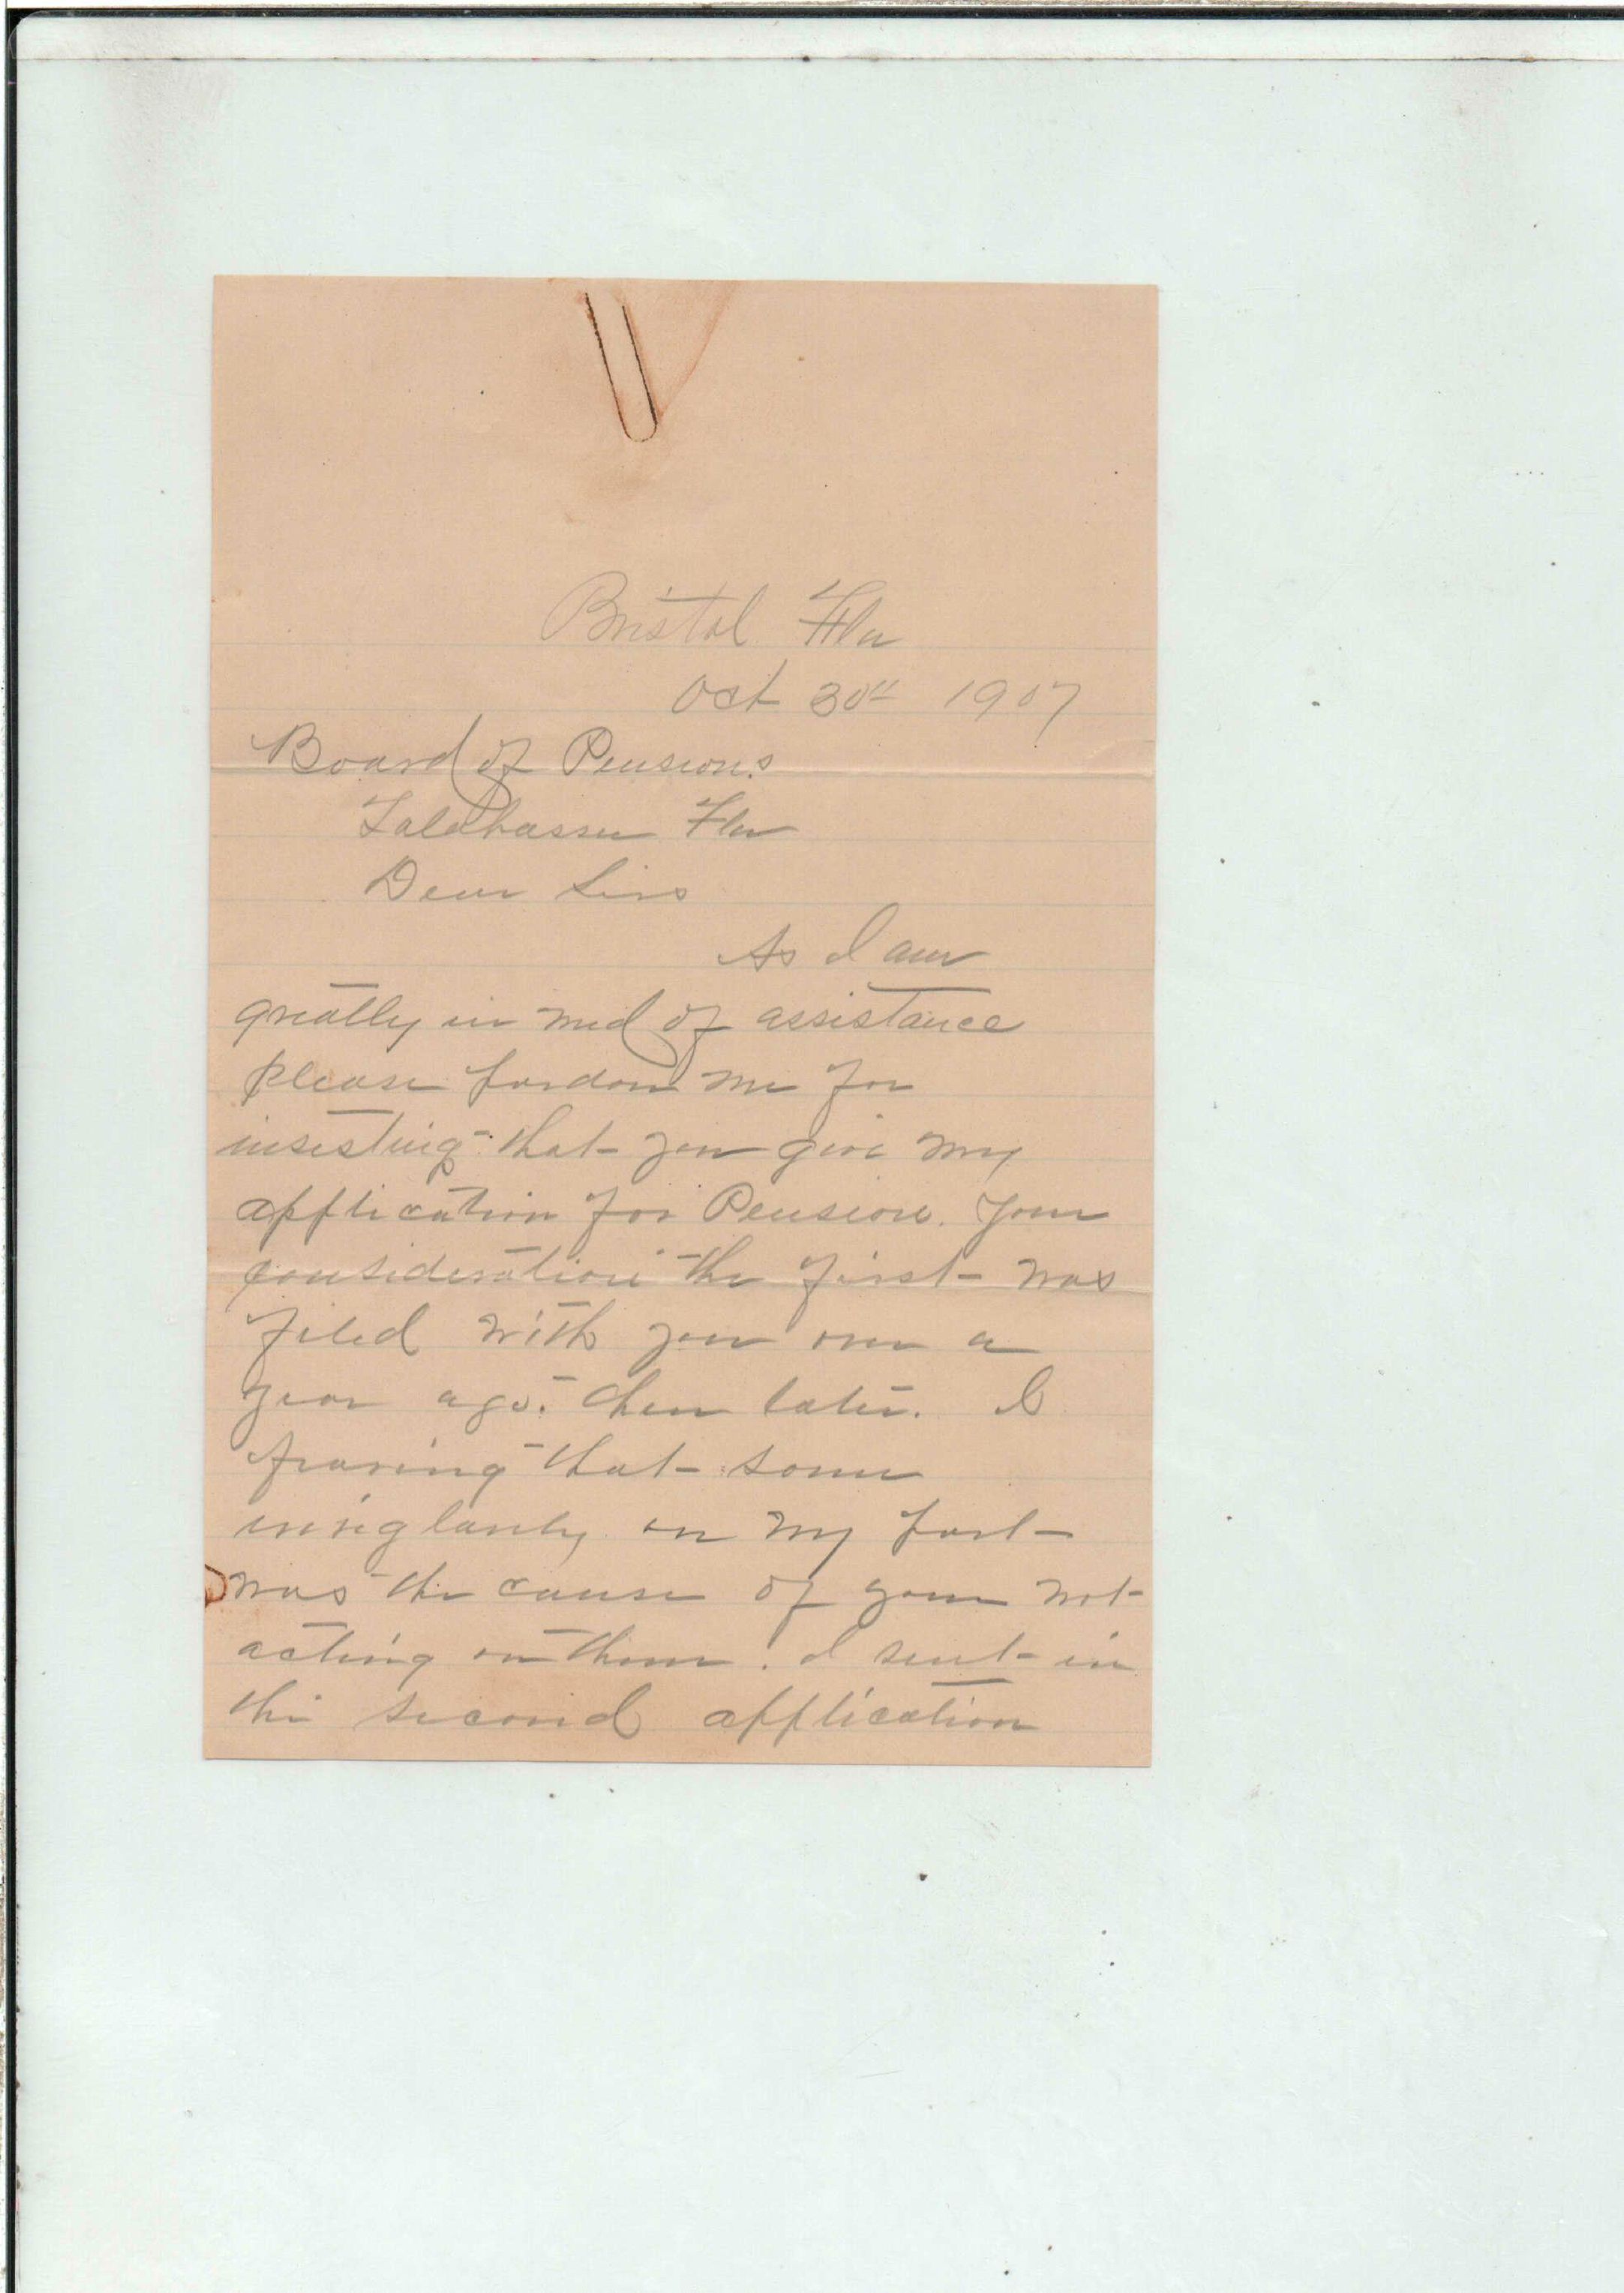 Bristol Fla
Oct 30th 1907
Board of Pensions
Talahassee Fla
Dear Sirs
As I am
greatly in need of assistance
please pardon me for
insisting that you give my
application for Pension. Your
consideration the first was
filed with you over a
year ago. then later. I
fearing that some
irreglarity on my part
was the cause of your not
acting on them. I sent in
the second application